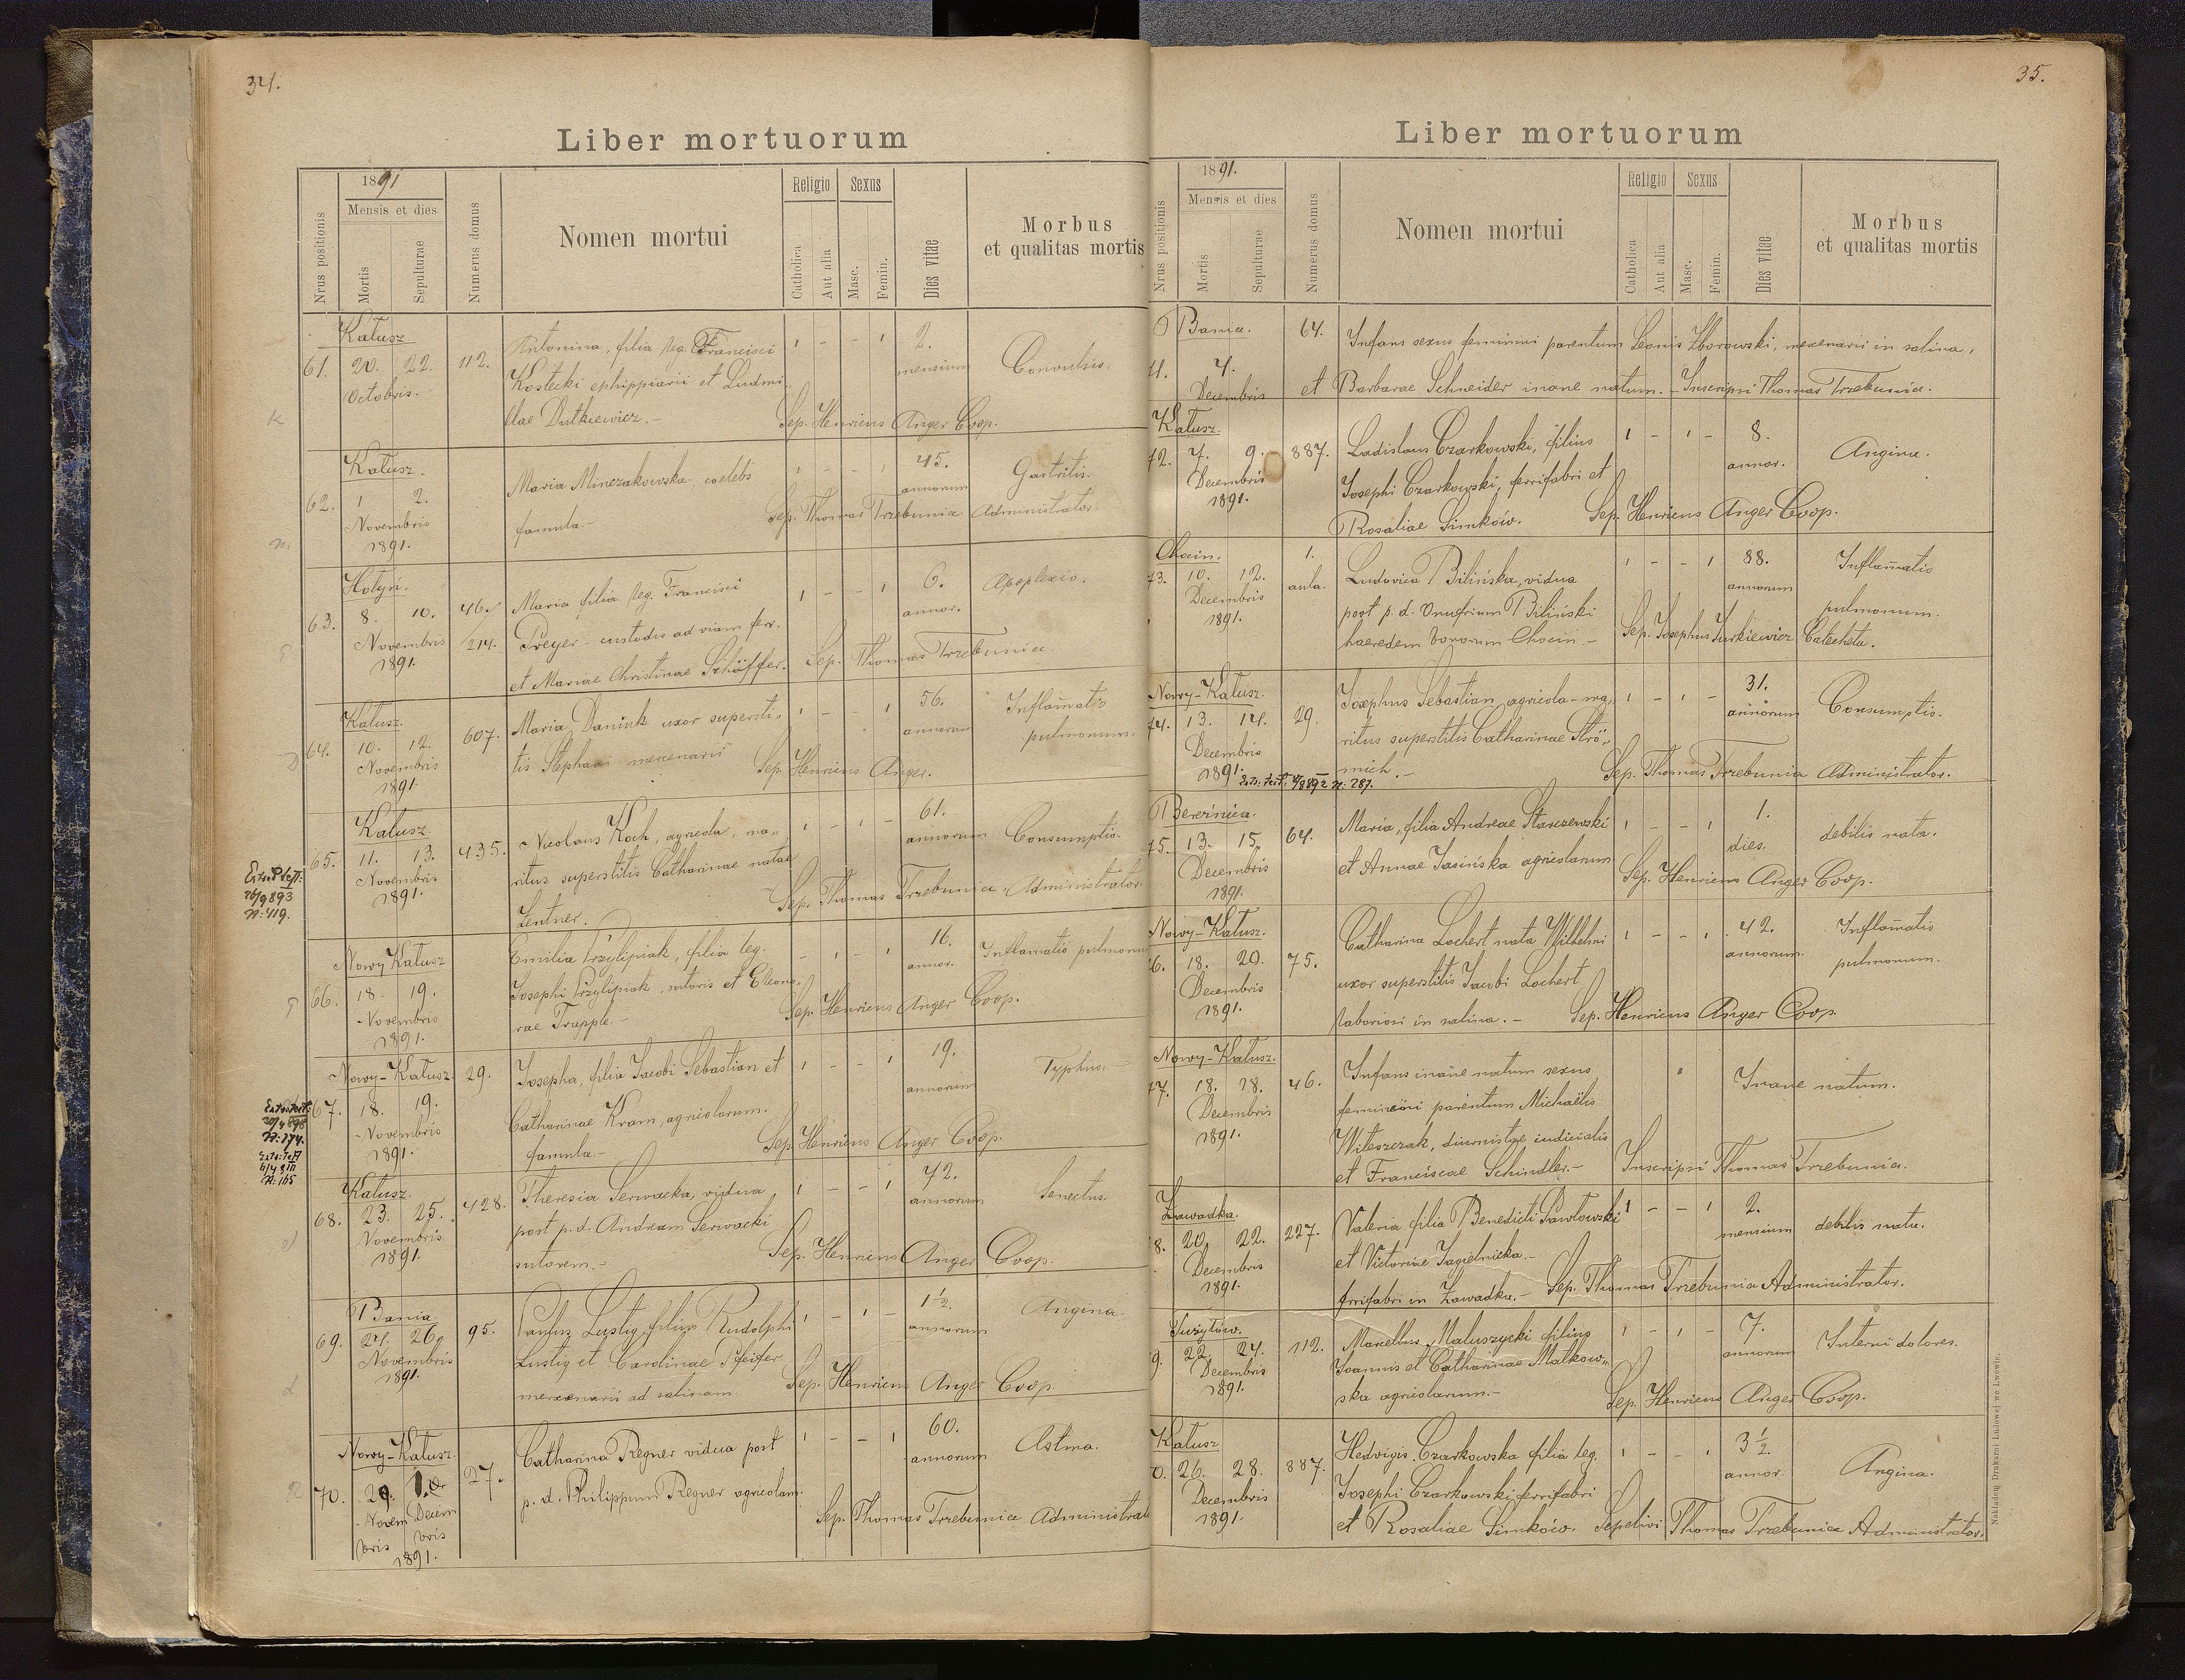 34.
Liber mortuorum
1891
Mensis et dies
Religio
Sexus
Nrus positionis
Mortis
Sepulturae
Numerus domus
Nomen mortui
Catholica
Aut alia
Masc.
Femin.
Dies vitae
Morbus
et qualitas mortis
Kałusz
61. 20. 22. 112. Antonina, filia leg. Francisci 1 - - 1 2.
Octobris. Kostecki ephippiarii et Ludmi- mensium Convulsio.
llae Dutkiewicz.- Sep. Henricus Anger Coop.
Kałusz.
62. 1 2. Maria Minczakowska, coelebs 1 - - 1 45. Gastritis.
Novembris famula.- annorum
1891. Sep. Thomas Trzebunia Administrator.
Hołyń.
63. 8. 10. 46./214. Maria filia leg. Francisci 1 - - 1 6. Apoplexio.
Novembris Preyer - custodis ad viam fer. annor.
1891. et Mariae Christinae Schöffer. Sep. Thomas Trzebunia
Kałusz.
64. 10. 12. 607. Maria Daniuk uxor supersti- 1 - - 1 56. Inflam̄atio
Novembris tis Stephani mercenarii annorum pulmonum.
1891. Sep. Henricus Anger.
Kałusz.
65. 11. 13. 435. Nicolaus Koch, agricola, ma- 1 - 1 - 61.
Novembris ritus superstitis Catharinae natae annorum Consumptio.
1891. Zentner. Sep. Thomas Trzebunia Administrator
Extr. test:
26/9 893
N: 419.
Nowy Kałusz
66. 18. 19. Emilia Przylipiak, filia leg. - 1 - 1 16.
Novembris Josephi Przylipiak, sutoris et Eleono- annor. Inflamatio pulmonum
1891. rae Trapple.- Sep. Henricus Anger Coop.
Nowy-Kałusz. 29.
67. 18. 19. Josepha, filia Jacobi Sebastian et 1 - - 1 19.
Novembris Catharinae Kram, agricolarum. annorum Typhus.
1891. famula.- Sep. Henricus Anger Coop.
N: 174.
N: 165
Kałusz.
68. 23. 25. 428. Theresia Serwacka, vidua 1 - - 1 72.
Novembris post p.d. Andream Serwacki annorum Senectus.
1891. sutorem.- Sep. Henricus Anger Coop.
Bania.
69. 24. 26. 95. Paulus Lustig, filius Rudolphi 1 - 1 - 1½. Angina.
Novembris Lustig et Carolinae Pfeifer annorum
1891. mercenarii ad salinam. Sep. Henricus Anger Coop
Nowy-Kałusz.
70. 29. 1. 27. Catharina Regner vidua post 1 - - 1 60. Astma.
Novem Decem p.d. Philippum Regner agricolam. annorum
bris bris Sep. Thomas Trzebunia Administrat
1891.
35.
Liber mortuorum
1891.
Mensis et dies
Religio
Sexus
Nrus positionis
Mortis
Sepulturae
Numerus domus
Nomen mortui
Catholica
Aut alia
Masc.
Femin.
Dies vitae
Morbus
et qualitas mortis
Bania. 64. Infans sexus feminini parentum Leonis Zborowski, mercenarii in salina,
71. 7.
Decembris et Barbarae Schneider inane natum. - Inscripsi Thomas Trzebunia.
Kałusz.
72. 7. 9. 887. Ladislaus Czarkowski, filius 1 - 1 - 8.
Decembris Josephi Czarkowski, ferrifabri et annor. Angina.
1891. Rosaliae Simków. Sep. Henricus Anger Coop.
Chocin. 1.
73. 10. 12. aula. Ludovica Bilińska, vidua 1 - - 1 88. Inflam̄atio
Decembris post p.d. Onufrium Biliński annorum pulmonum.
1891. haeredem bonorum Chocin - Sep. Josephus Jurkiewicz Catecheta.
Nowy-Kałusz.
74. 13. 14. 29. Josephus Sebastian, agricola - ma- 1 - 1 - 31.
Decembris ritus superstitis Catharinae Strö- annorum Consumptio.
1891. mich.- Sep. Thomas Trzebunia Administrator.
N: 287.
Bereźnica.
75. 13. 15. 64. Maria, filia Andreae Starczewski 1 - - 1 1.
Decembris et Annae Jasińska agricolarum dies. debilis nata.
1891. Sep. Henricus Anger Coop.
Nowy-Kałusz.
76. 18. 20. 75. Catharina Lochert nata Wilhelmi 1 - - 1 42. Inflam̄atio
Decembris uxor superstitis Jacobi Lochert annorum pulmonum.
1891. laboriosi in salina. - Sep. Henricus Anger Coop.
Nowy-Kałusz.
77. 18. 18. 46. Infans inane natum sexus Inane natum.
Decembris feminini parentum Michaëlis
1891. Witoszczak, diurnistae iudicialis
et Franciscae Schindler.- Inscripsi Thomas Trzebunia.
Zawadka.
78. 20. 22. 227. Valeria filia Benedicti Pawłowski 1 - - 1 2.
Decembris et Victoriae Jagielnicka.- mensium debilis nata.
1891. ferrifabri in Zawadka.- Sep. Thomas Trzebunia Administrator.
79. 22. 24. 112. Marcellus Maluszycki filius 1 - 1 - 7.
Decembris Joannis et Catharinae Małkow- annorum Interni dolores.
1891. ska agricolarum.- Sep. Henricus Anger Coop.
Kałusz
80. 26. 28. 887. Hedvigis Czarkowska filia leg. 1 - - 1 3½.
Decembris Josephi Czarkowski ferrifabri annor. Angina.
1891. et Rosaliae Simków. Sepelivi Thomas Trzebunia Administrator.
Nakładem Drukarni Ludowej we Lwowie.